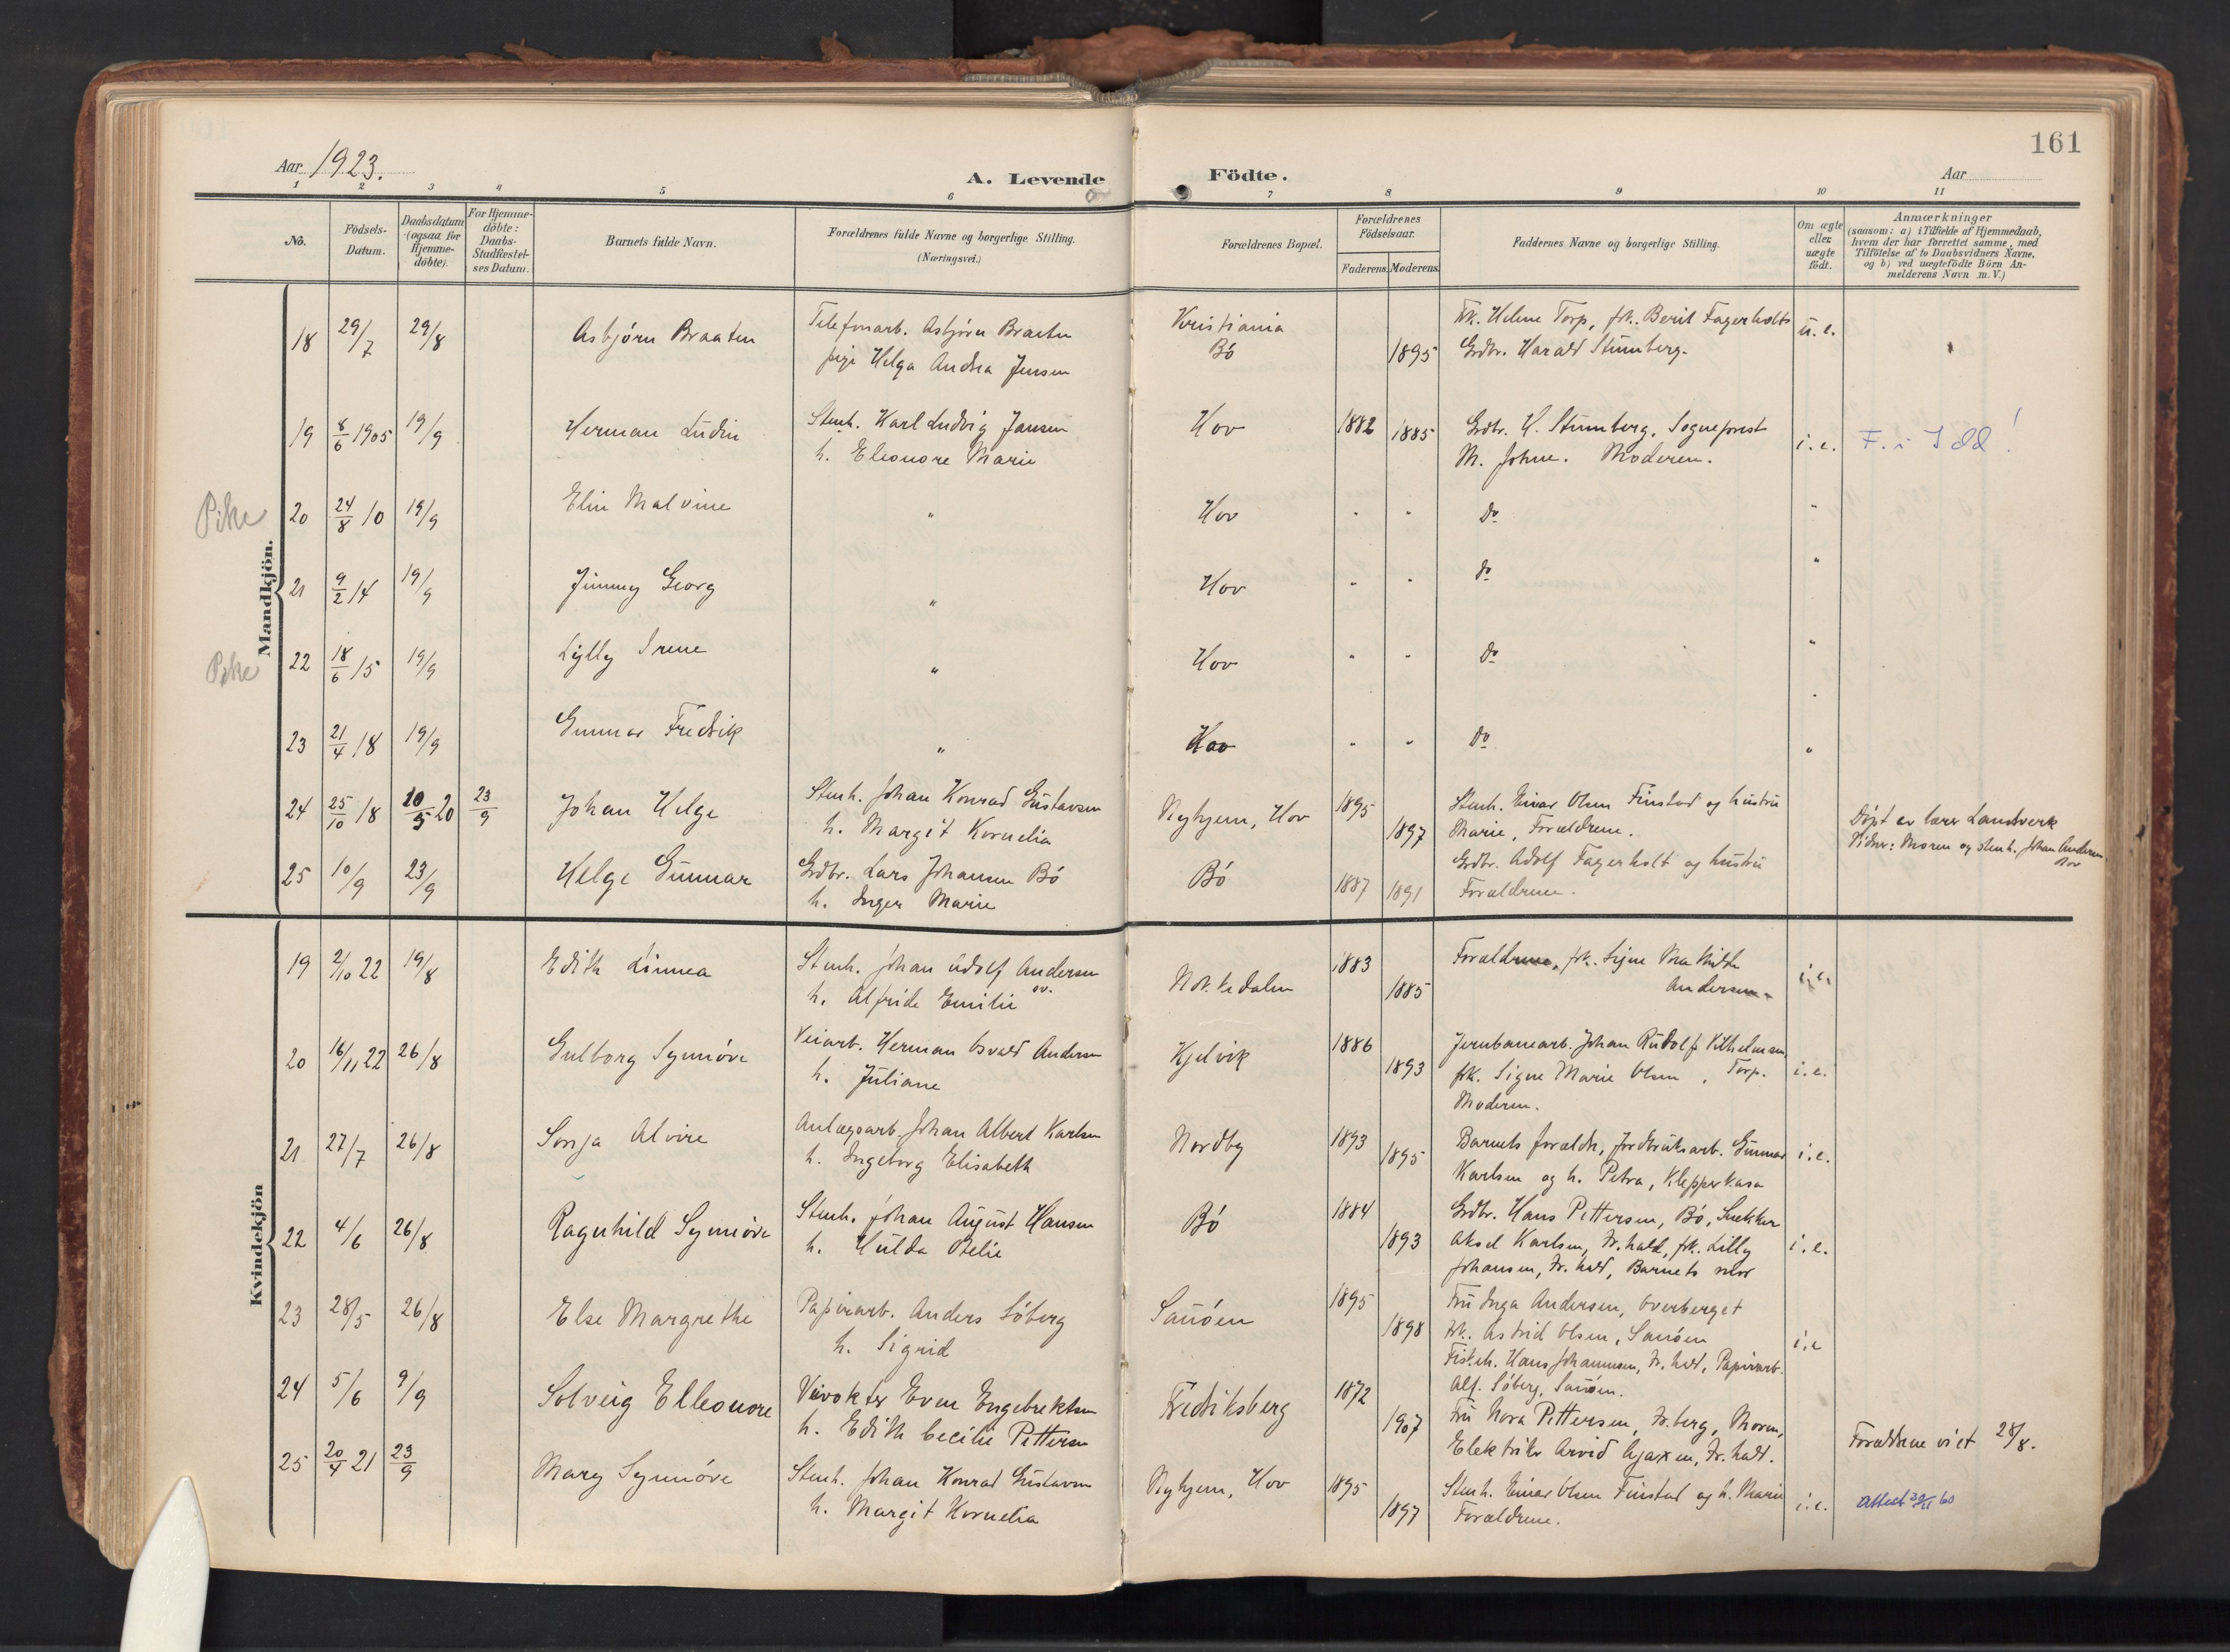 161
Aar 1923.
A. Levende Födte.
Aar
1 2 3 4 5 6 7 8 9 10 11
No.
Födsels-
Datum.
Daabsdatum
(ogsaa for
Hjemme-
döbte).
For Hjemme-
döbte:
Daabs-
Stadfæstel-
ses Datum.
Barnets fulde Navn.
Forældrenes fulde Navne og borgerlige Stilling.
(Næringsvei.)
Forældrenes Bopæl.
Forældrenes
Födselsaar.
Faderens. Moderens.
Faddernes Navne og borgerlige Stilling.
Om ægte
eller
uægte
födt.
Anmærkninger
(saasom: a) i Tilfælde af Hjemmedaab,
hvem der har forrettet samme, med
Tilföielse af to Daabsvidners Navne,
og b) ved uægtefödte Börn An-
melderens Navn m. V.)
Mandkjön.
18 29/7 29/8 Asbjörn Braaten
Telefonarb. Asbjörn Braaten
pige Helga Andrea Jensen
Kristiania
Bö
1895
Frk. Helene Torp, frk. Berit Fagerholt
Grdbr. Harald Stumberg.
u.e.
19 8/6 1905 19/9 Herman Ludin
Stenh. Karl Ludvig Jansen
h. Eleonore Marie
Hov 1882 1885
Grdbr. H. Stumberg, Sogneprest
M. Johne. Moderen.
i.e. F. i Idd!
Pike 20 24/8 10 19/9 Elin Malvine " Hov " " Do "
21 9/2 14 19/9 Jimmy Georg " Hov " " Do "
Pike 22 18/6 15 19/9 Lylly Irene " Hov " " Do "
23 21/4 18 19/9 Gunnar Fredrik " Hov " " Do "
24 25/10 18 10/5 20 23/9 Johan Helge
Stenh. Johan Konrad Gustavsen
h. Margit Kornelia
Nyhjem, Hov 1895 1897
Stenh. Einar Olsen Finstad og hustru
Marie, Forældrene.
Döpt av lærer Landverk
Vidner: Moren og stenh. Johan Andersen
25 10/9 23/9 Helge Gunnar
Grdbr. Lars Johansen Bö
h. Inger Marie
Bö 1887 1891
Grdbr. Adolf Fagerholt og hustru
Forældrene.
Kvindekjön
19 2/10 22 19/8 Edith Linnea
Stenh. Johan Adolf Andersen
h. Alfride Emilie
1883 1885
Forældrene, frk. Signe Mathilde
Andersen.
i.e.
20 16/11 22 26/8 Gulborg Synnöve
Veiarb. Herman Osvald Andersen
h. Juliane
Kjelvik 1886 1893
Jernbanearb. Johan Rudolf Vilhelmsen,
frk. Signe Marie Olsen, Torp.
Moderen.
i.e.
21 27/7 26/8 Sonja Alvire
Anlægsarb. Johan Albert Karlsen
h. Ingeborg Elisabeth
Nordby 1893 1895
Barnets forældre, jordbruksarb. Gunnar
Karlsen og h. Petra, Klepperkasa
i.e.
22 4/6 26/8 Ragnhild Synnöve
Stenh. Johan August Hansen
h. Hulda Otelie
Bö 1884 1893
Grdbr. Hans Pettersen, Bö, Snekker
Aksel Karlsen, Fr.hald, frk. Lilly
Johansen, Fr.hald, Barnets mor
i.e.
23 28/5 26/8 Else Margrethe
Papirarb. Anders Söberg
h. Sigrid
Sauöen 1895 1898
Fru Inga Andersen, Overberget
Frk. Astrid Olsen, Sauöen
Fiskeh. Hans Johannesen, Fr.hald, Papirarb.
Alf. Söberg, Sauöen.
i.e
24 5/6 9/9 Solveig Elleonore
Veivokter Even Engebrektsen
h. Edith Cecilie Pettersen
Fredriksberg 1872 1907
Fru Nora Pettersen, Fr.berg, Moren,
Elektriker Arvid Ajaxen, Fr.hald.
Forældrene viet 28/8.
25 20/4 21 23/9 Mary Synnöve
Stenh. Johan Konrad Gustavsen
h. Margit Kornelia
Nyhjem, Hov 1895 1897
Stenh. Einar Olsen Finstad og h. Marie
Forældrene.
i.e. Attest 60